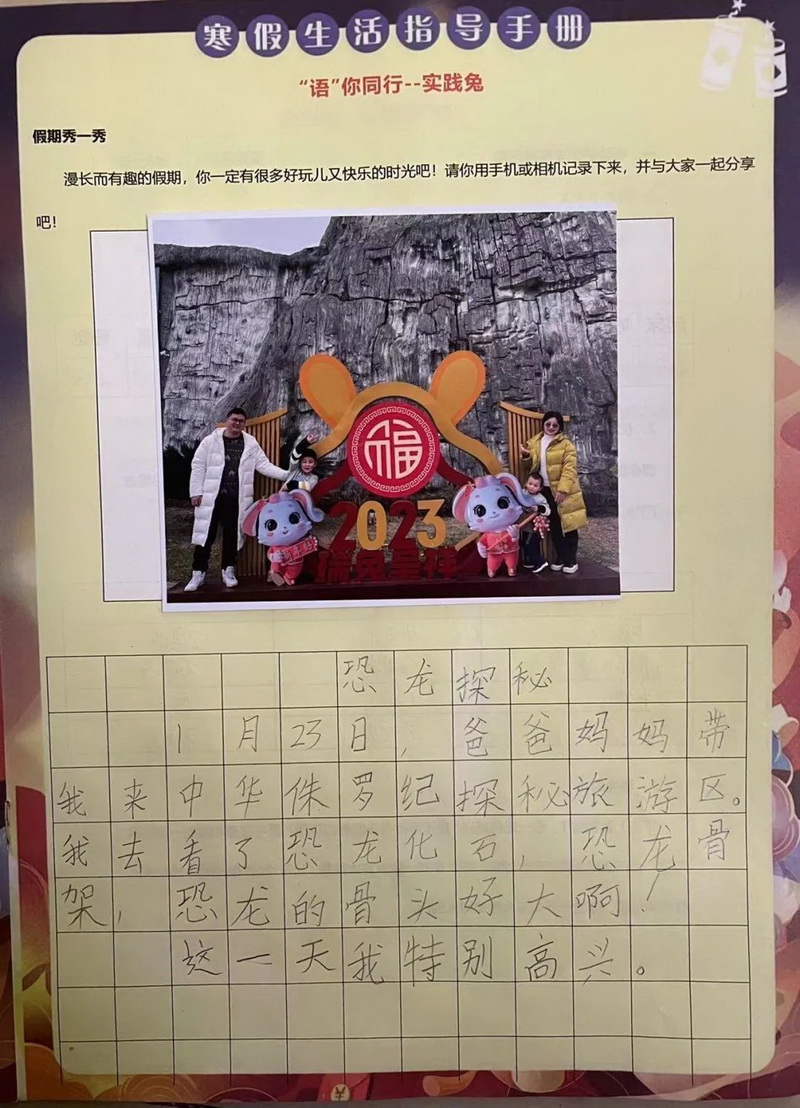 寒假生活指导手册
“语”你同行--实践兔
假期秀一秀
漫长而有趣的假期，你一定有很多好玩儿又快乐的时光吧！请你用手机或相机记录下来，并与大家一起分享
吧！
福
2023
瑞兔呈祥
恐龙探秘
1月23日，爸爸妈妈带
我来中华侏罗纪探秘旅游区。
我去看了恐龙化石，恐龙骨
架，恐龙的骨头好大啊！
这一天我特别高兴。